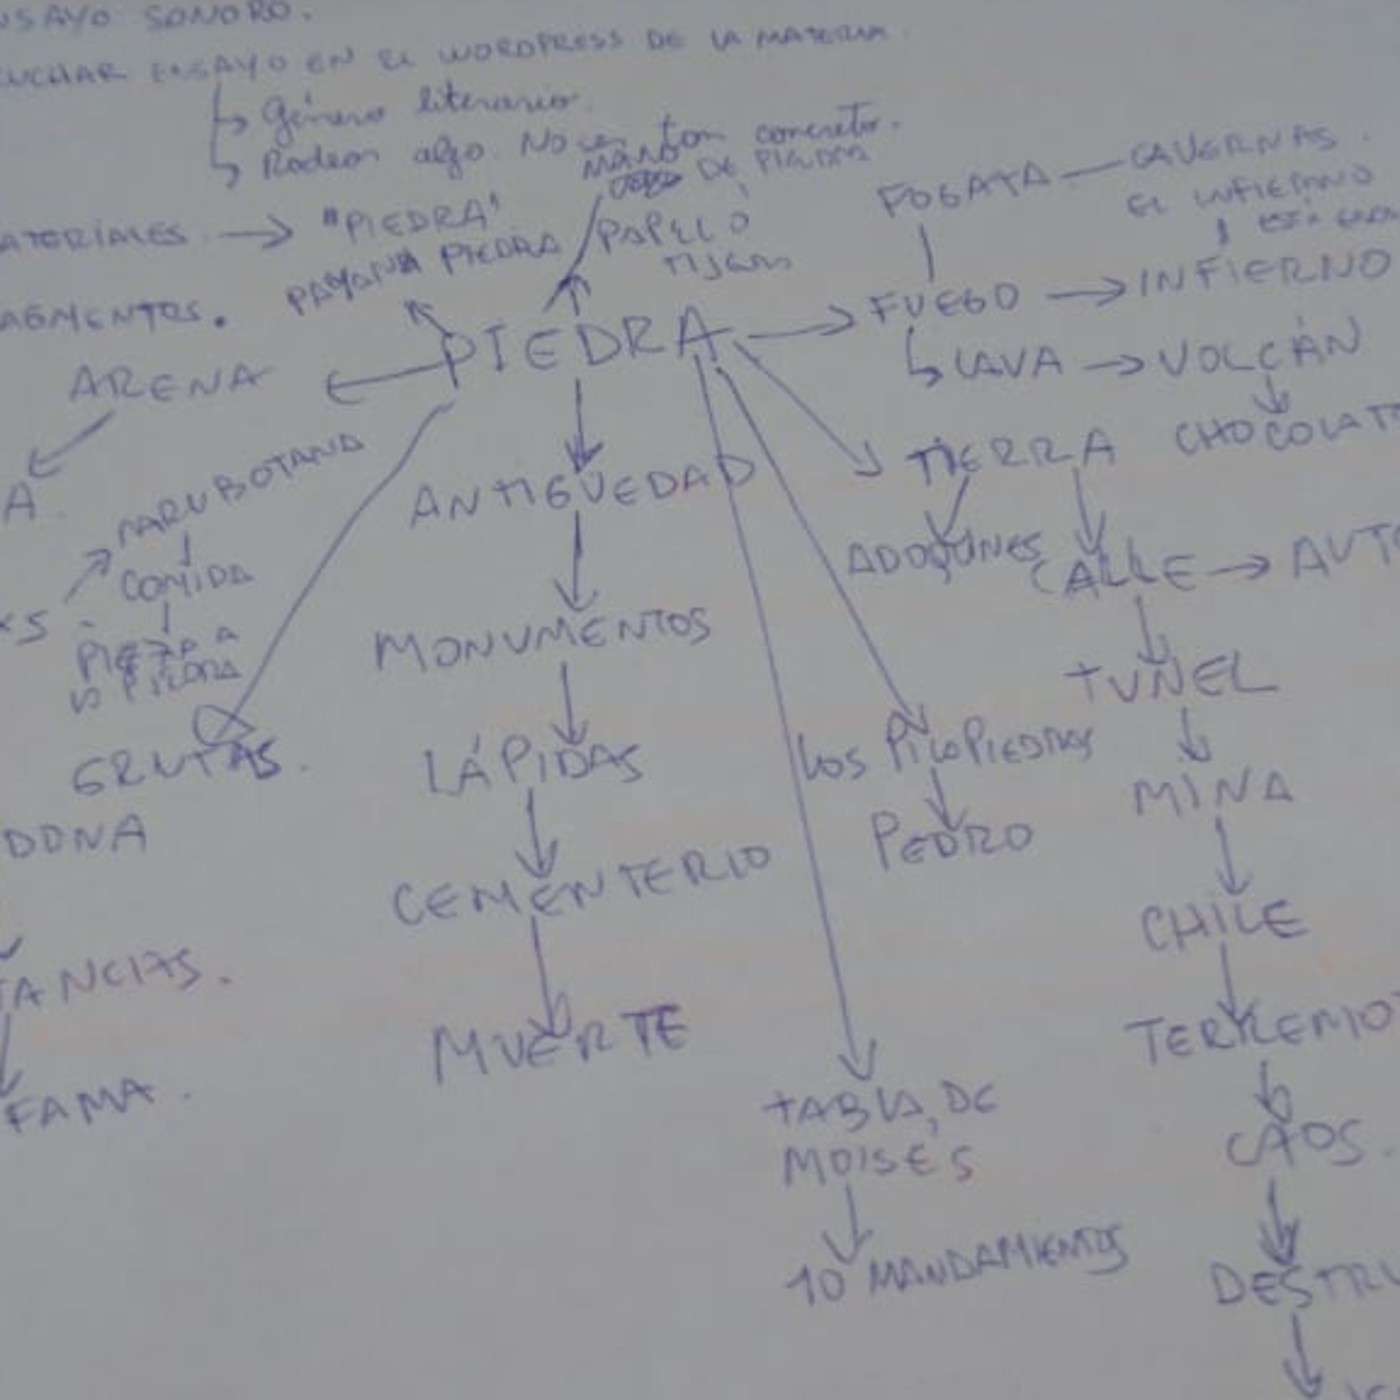 ENSAYO SONORO.
ESCUCHAR ENSAYO EN EL WORDPRESS DE LA MATERIA.
Género literario.
Rodear algo. No es tan concreto.
MANO DE PIEDRA
FOGATA — CAVERNAS.
EL INFIERNO
ESTÁ
MATERIALES → "PIEDRA"
PAPEL O
TIJERA
PAYANA PIEDRA
FRAGMENTOS.
PIEDRA
FUEGO → INFIERNO
ARENA
LAVA → VOLCÁN
CHOCOLAT
TIERRA
A.
MARU BOTANA
ANTIGÜEDAD
COMIDA
ADOQUINES
CALLE → AUTO
PIEDRA
MONUMENTOS
TUNEL
GRUTAS.
LÁPIDAS
LOS PICAPIEDRAS
MINA
DONA
PEDRO
CEMENTERIO
CHILE
TANCIAS.
MUERTE
TERREMOT
FAMA.
TABLA, DE
MOISES
CAOS.
10 MANDAMIENTOS
DESTRU